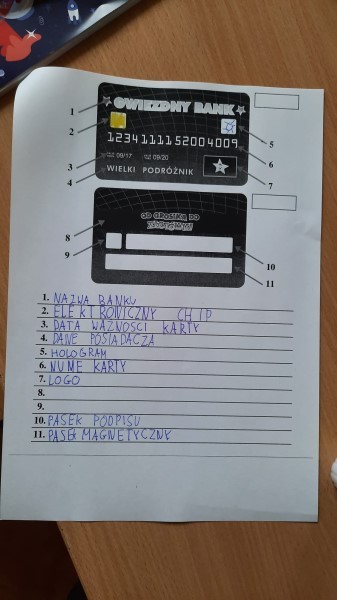 GWIEZDNY BANK
1
2
1234111152004009
5
6
3
OD 09/17 DO 09/20
4
WIELKI PODRÓŻNIK
7
8
OD GROSIKA DO
9
10
11
1. NAZWA BANKU
2. ELEKTRONICZNY CHIP
3. DATA WAŻNOSCI KARTY
4. DANE POSIADACZA
5. HOLOGRAM
6. NUME KARTY
7. LOGO
8.
9.
10. PASEK PODPISU
11. PASEK MAGNETYCZNY